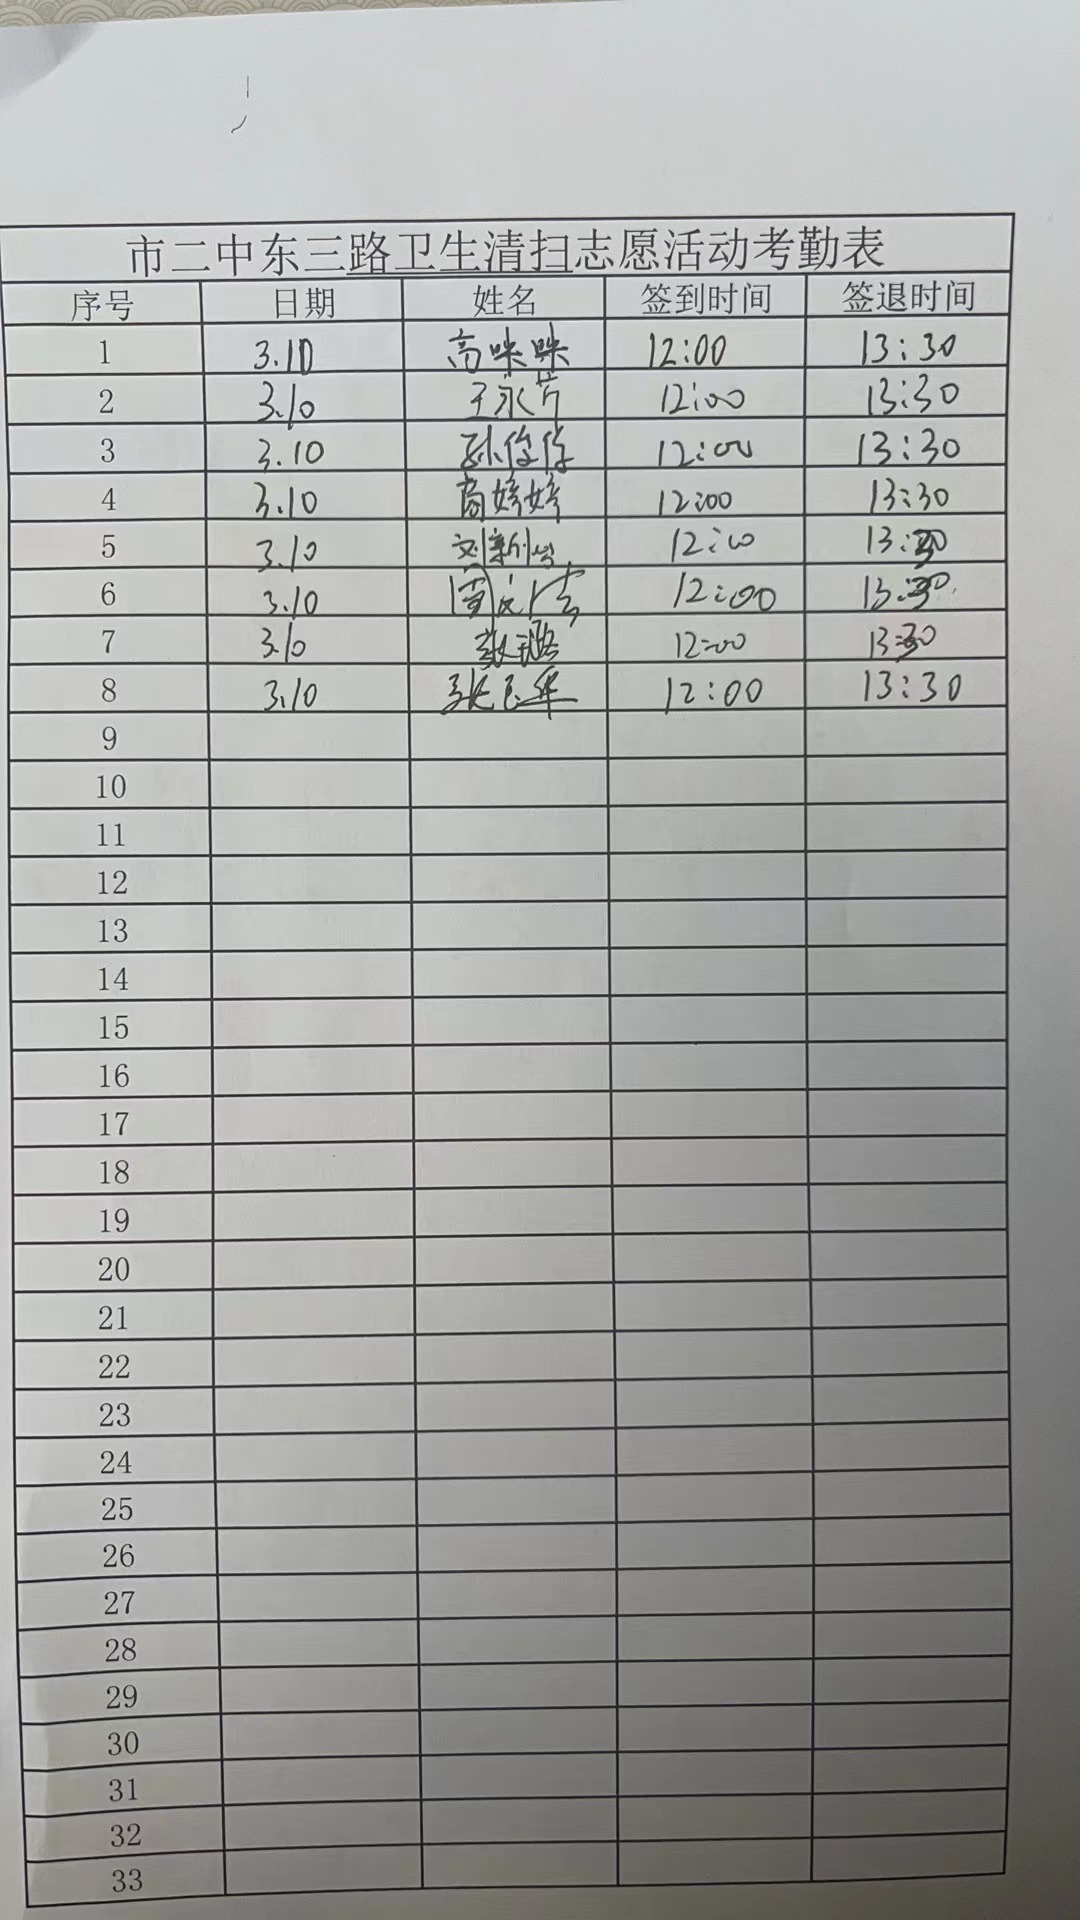 市二中东三路卫生清扫志愿活动考勤表
序号 日期 姓名 签到时间 签退时间
1 3.10 高咪咪 12:00 13:30
2 3.10 王永芹 12:00 13:30
3 3.10 孙俊俊 12:00 13:30
4 3.10 高婷婷 12:00 13:30
5 3.10 12:00 13:30
6 3.10 12:00 13:30
7 3.10 12:00 13:30
8 3.10 12:00 13:30
9
10
11
12
13
14
15
16
17
18
19
20
21
22
23
24
25
26
27
28
29
30
31
32
33